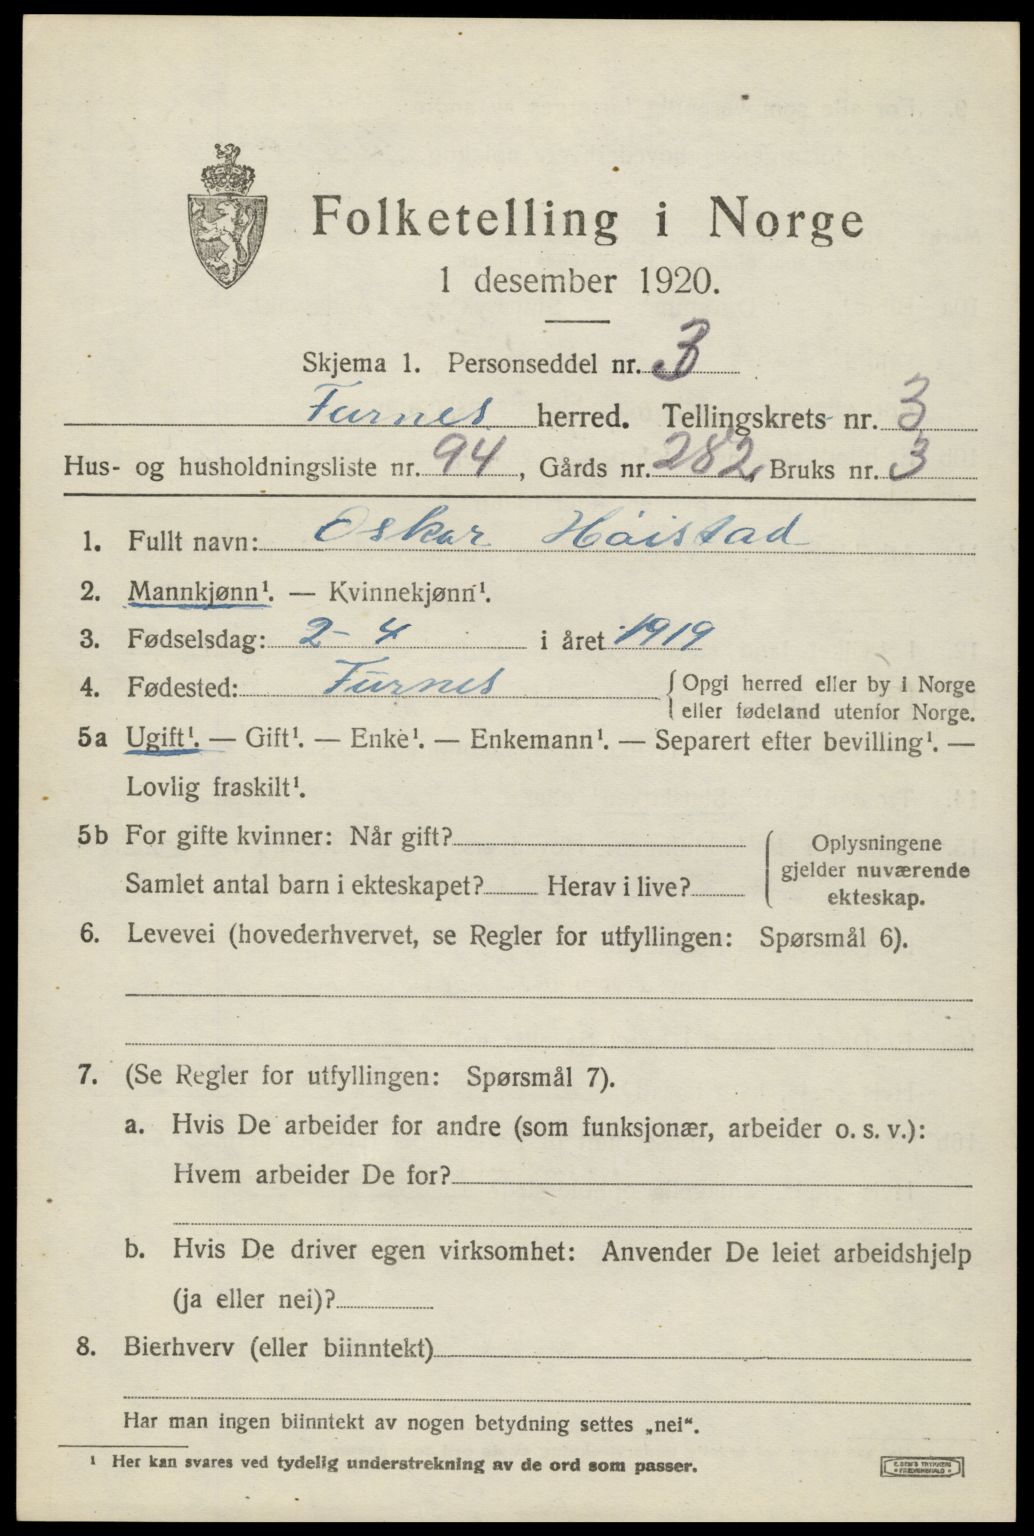 Folketelling i Norge
1 desember 1920.
Skjema 1. Personseddel nr. 3
Furnes herred. Tellingskrets nr. 3
Hus- og husholdningsliste nr. 94, Gårds nr. 282, Bruks nr. 3
1. Fullt navn: Oskar Høistad
2. Mannkjønn¹. — Kvinnekjønn¹.
3. Fødselsdag: 2-4 i året 1919
4. Fødested: Furnes { Opgi herred eller by i Norge
eller fødeland utenfor Norge.
5a Ugift¹. — Gift¹. — Enke¹. — Enkemann¹. — Separert efter bevilling¹. —
Lovlig fraskilt¹.
5b For gifte kvinner: Når gift?
Samlet antal barn i ekteskapet? Herav i live?
{ Oplysningene
gjelder nuværende
ekteskap.
6. Levevei (hovederhvervet, se Regler for utfyllingen: Spørsmål 6).
7. (Se Regler for utfyllingen: Spørsmål 7).
a. Hvis De arbeider for andre (som funksjonær, arbeider o. s. v.):
Hvem arbeider De for?
b. Hvis De driver egen virksomhet: Anvender De leiet arbeidshjelp
(ja eller nei)?
8. Bierhverv (eller biinntekt)
Har man ingen biinntekt av nogen betydning settes „nei“.
¹ Her kan svares ved tydelig understrekning av de ord som passer.